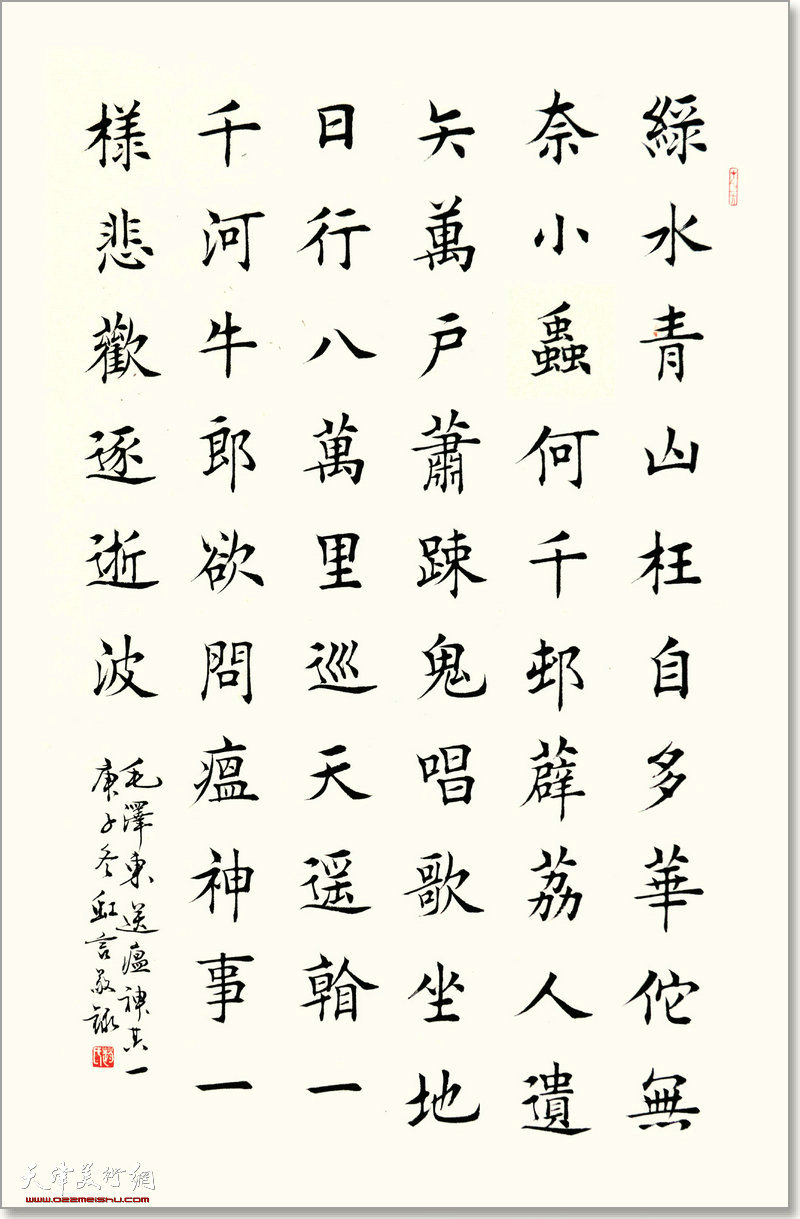 綠水青山枉自多華佗無
奈小蟲何千邨薜荔人遺
矢萬戶蕭踈鬼唱歌坐地
日行八萬里巡天遥看一
千河牛郎欲問瘟神事一
樣悲歡逐逝波
毛澤東送瘟神其一
庚子冬虹言敬錄
天津美術網
www.022meishu.com